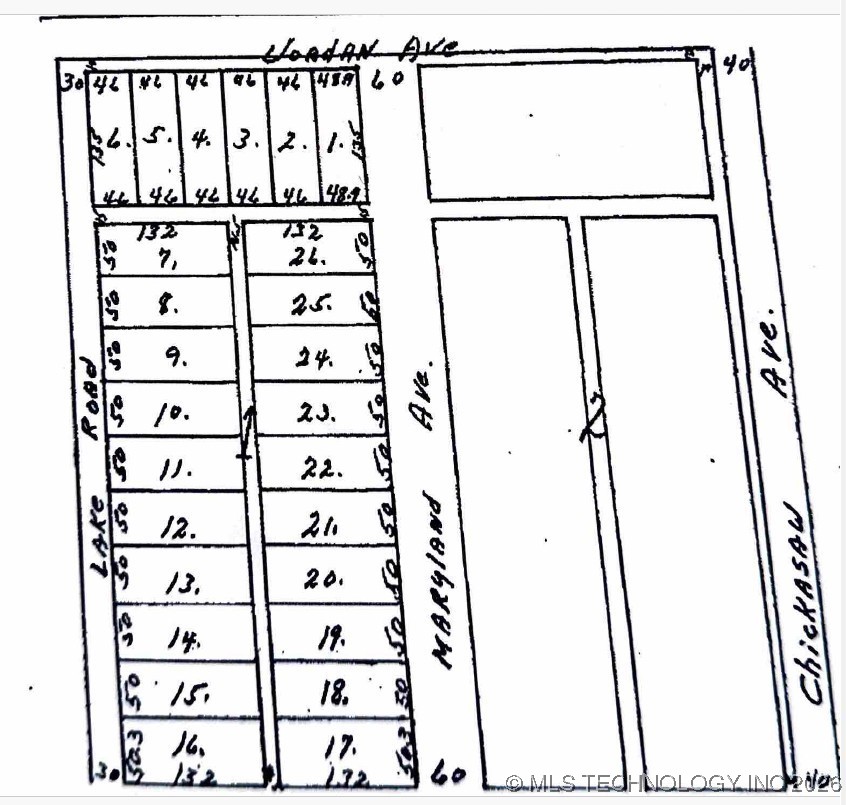 JORDAN AVE
30 46 46 46 46 46 48.9 60 40
135 6. 5. 4. 3. 2. 1. 135
46 46 46 46 46 48.9
132 132
50 7. 26. 50
50 8. 25. 50
50 9. 24. 50
50 10. 23. 50
50 11. 22. 50
50 12. 21. 50
50 13. 20. 50
50 14. 19. 50
50 15. 18. 50
50.3 16. 17. 50.3
30 132 132 60
LAKE ROAD
1
MARYLAND AVE.
2
CHICKASAW AVE.
© MLS TECHNOLOGY INC 2026